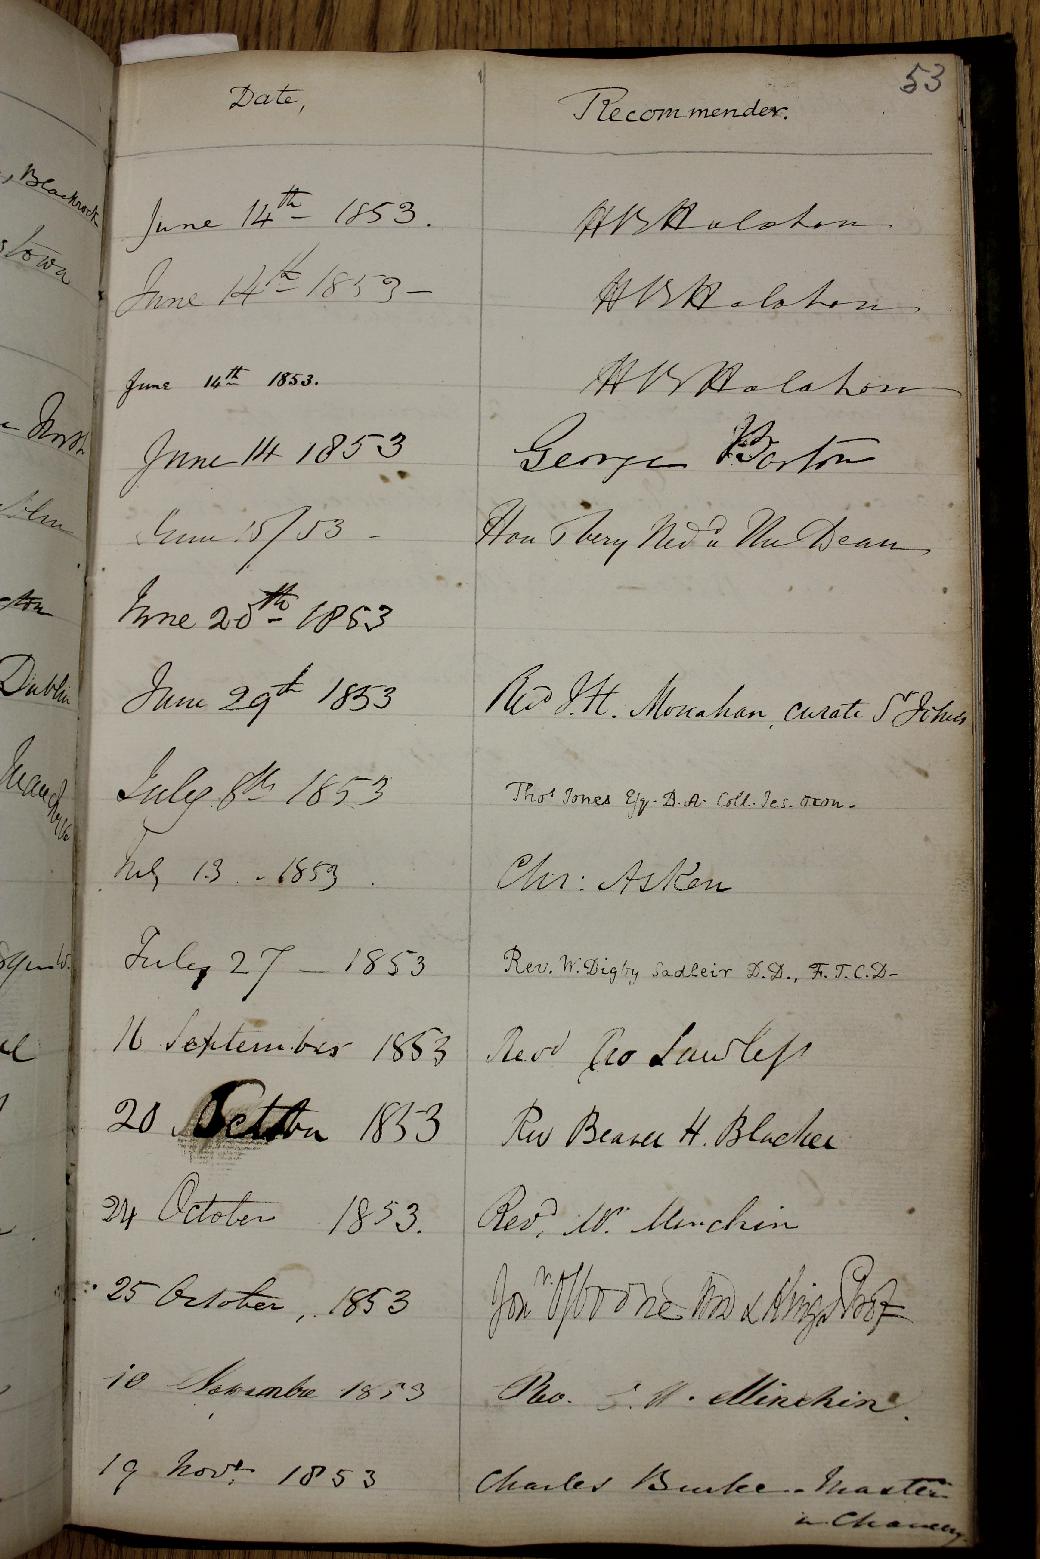 53
Date, Recommender.
, Blackrock
June 14th 1853. H B Halahan
stowa
June 14th 1853 — H B Halahan
June 14th 1853. H B Halahan
North
June 14 1853 George Barton
June 15/53 - Hon & very Revd The Dean
June 20th 1853
Dublin
June 29th 1853 Revd J. H. Monahan, curate St Johns
July 8th 1853 Thos Jones Esq. B.A. Coll. Jes. Oxon.
July 13 - 1853. Chr: Asken
July 27 — 1853 Rev. W. Digby Sadleir D.D., F.T.C.D-
16 September 1853 Revd Geo Lawless
20 October 1853 Rev Beaver H. Blacker
24 October 1853. Revd. Wm. Minchin
25 October, 1853 Jonn Osborne MD & Kings Prof
10 November 1853 Rev. H. Minchin.
19 Novr 1853 Charles Burke - Master
in Chancery